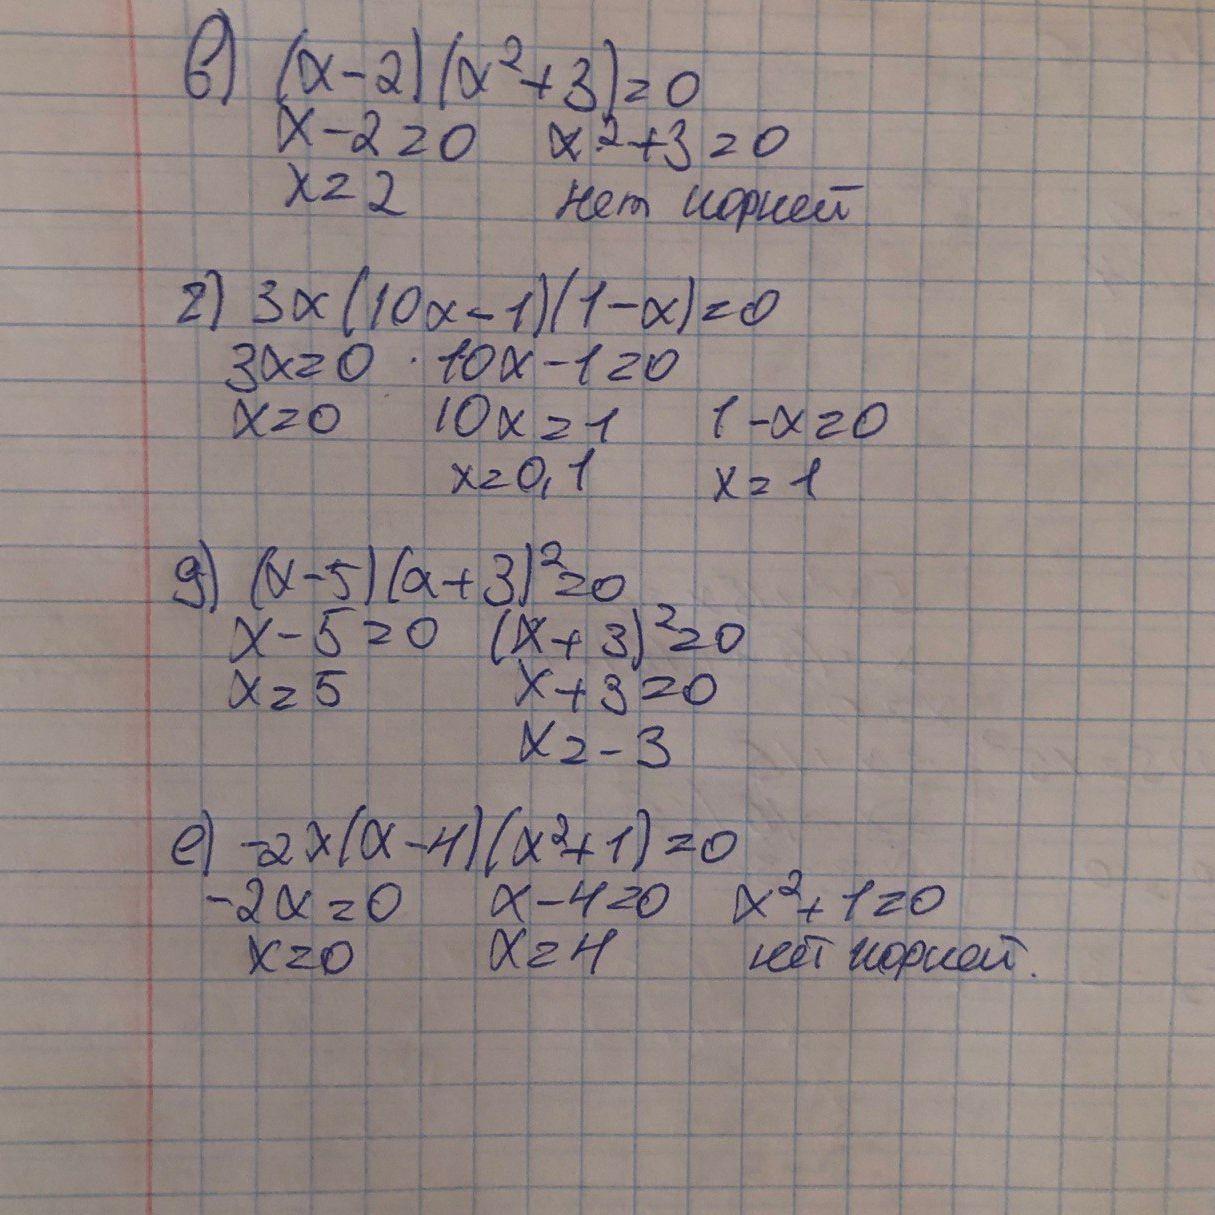 в) (x-2)(x²+3)=0
x-2=0 x²+3=0
x=2 нет корней
г) 3x(10x-1)(1-x)=0
3x=0 · 10x-1=0
x=0 10x=1 1-x=0
x=0,1 x=1
д) (x-5)(x+3)²=0
x-5=0 (x+3)²=0
x=5 x+3=0
x=-3
е) -2x(x-4)(x²+1)=0
-2x=0 x-4=0 x²+1=0
x=0 x=4 нет корней.